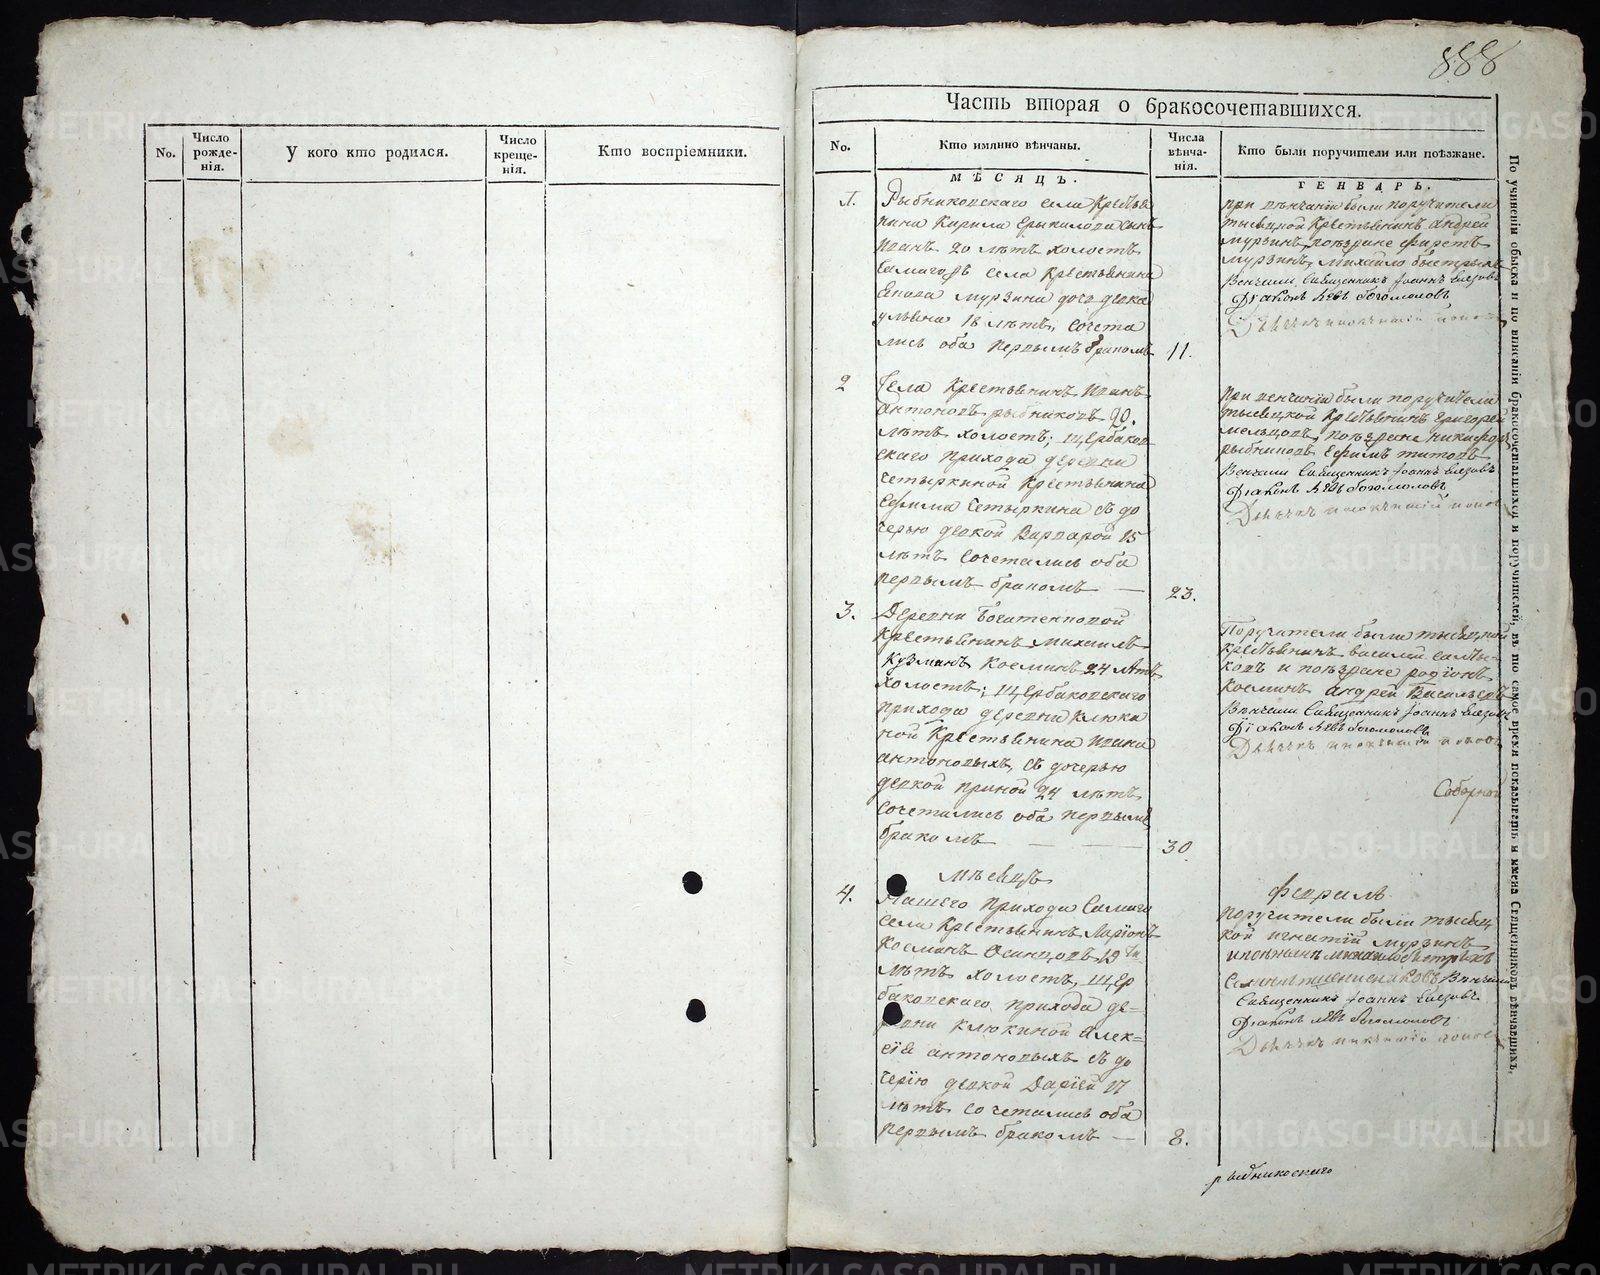 No.
Число рожде-нія.
У кого кто родился.
Число креще-нія.
Кто воспріемники.
888
Часть вторая о бракосочетавшихся.
No.
Кто имянно вѣнчаны.
Числа вѣнча-нія.
Кто были поручители или поѣзжане.
МѢСЯЦЪ.
ГЕНВАРЬ.
1.
Рыбниковскаго села Крестья
нина Кирила сынъ
Иванъ 20 лѣтъ холостъ
села крестьянина
мурзина дочь девка
ульяна 18 лѣтъ, сочета
лись оба первымъ бракомъ
11.
при венчаніи были поручители
тысяцкой крестьянинъ андрей
мурзинъ, поѣзжане
мурзинъ, михайло быстрыхъ
Венчали Священникъ Іоаннъ
Діаконъ Левъ богомоловъ
2
Села Крестьянинъ Иванъ
антоновъ рыбниковъ 20.
лѣтъ холостъ; щербаков
скаго прихода деревни
Четыркиной Крестьянина
Ефима Четыркина съ до
черью девкой Варварой 25
лѣтъ сочетались оба
первымъ бракомъ
23.
при венчаніи были поручители
тысяцкой крестьянинъ григорей
мельцовъ, поѣзжане никифоръ
рыбниковъ Ефимъ титовъ
Венчали Священникъ Іоаннъ
Діаконъ Левъ богомоловъ
3.
Деревни Богатенковой
крестьянинъ михаилъ
Кузминъ Косминъ 24 лѣтъ
холостъ; щербаковскаго
прихода деревни клюки
ной Крестьянина Ивана
антоновыхъ съ дочерью
девкой 24 лѣтъ
сочетались оба первымъ
бракомъ
30.
Поручители были тысяцкой
крестьянинъ василей
и поѣзжане родіонъ
Косминъ андрей Васильевъ
Вѣнчали Священникъ Іоаннъ
Діаконъ Левъ богомоловъ
Соборной
мѣсяцъ
февраль
4.
Нашего прихода самаго
села Крестьянинъ Ларіонъ
Косминъ Осинцовъ 19ти
лѣтъ холостъ, щер
баковскаго прихода де-
ревни клюкиной Алек-
сѣя антоновыхъ съ до
черію девкой Дарьей 17
лѣтъ сочетались оба
первымъ бракомъ
8.
поручители были тысяц
кой игнатій мурзинъ
Вѣнчали
Священникъ Іоаннъ
Діаконъ Левъ богомоловъ
рыбниковскаго
По учиненіи обыска и по вписаніи бракосочетавшихся и поручителей, въ то самое время показывать и имена Священниковъ вѣнчавшихъ.
METRIKI.GASO-URAL.RU